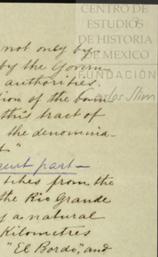 CENTRO DE
ESTUDIOS
DE HISTORIA
DE MEXICO
FUNDACIÓN
Carlos Slim
not only by
by the Govern-
authorities,
ion of the boun
this tract of
the denomina-
t."
cut part—
tches from the
the Rio Grande
y a natural
Kilometres
"El Bordo", and